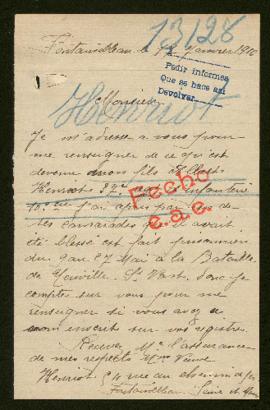 13128
Fontainebleau le 12 janvier 1916
Pedir informes
Que se hace así
Devolver
Henriot
Monsieur
Je m'adresse a vous pour
me renseigner de ce qu'est
devenu mon fils Albert
Henriot 82me d'Infanterie
10me j'ai apris par
ses camarades qu'il avait
été blessé est fait prisonnier
du 9 au 27 Mai à la Bataille
de Neuville St Vast. Donc je
compte sur vous pour me
renseigner si vous avez
nom inscrit sur vos registre.
Recevez Mr l'assurance
de mes respects Mme Veuve
Henriot rue du chemin de fer
Fontainebleau Seine et Mne
Fecho
e.a.e.